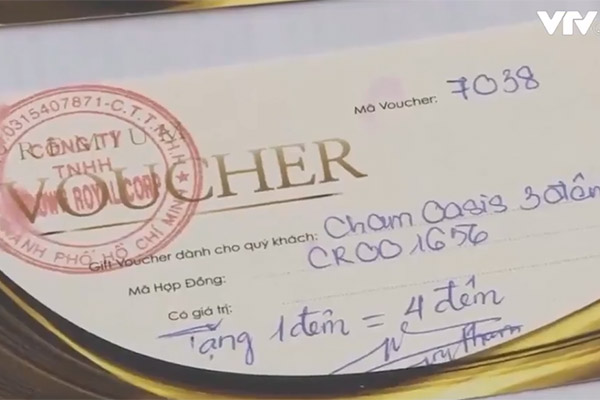 VTV
Mã Voucher: 7038
0315407871-C.T.T.N.H.H
CÔNG TY
TNHH
ROYAL CORP
THÀNH PHỐ HỒ CHÍ MINH
VOUCHER
Gift Voucher dành cho quý khách: Cham Oasis 3 đêm
Mã Hợp Đồng: CROO1656
Có giá trị:
Tặng 1 đêm = 4 đêm